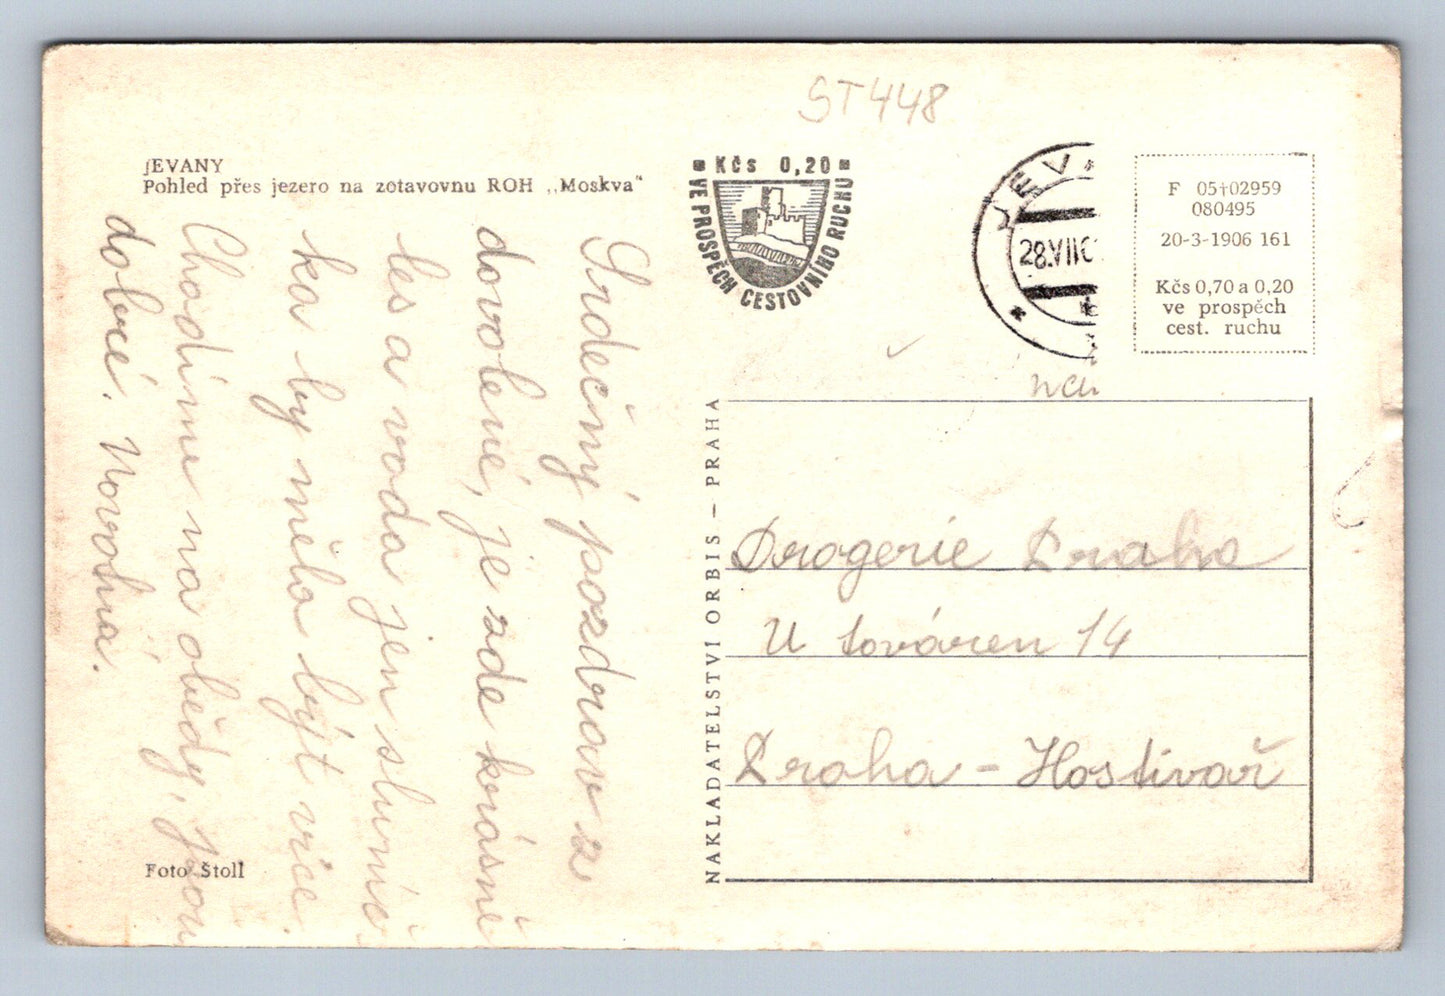 ST448
JEVANY
Pohled přes jezero na zotavovnu ROH ,,Moskva"
Kčs 0,20
VE PROSPĚCH CESTOVNÍHO RUCHU
JEV
28.VII.6
F 05†02959
080495
20-3-1906 161
Kčs 0,70 a 0,20
ve prospěch
cest. ruchu
Srdečný pozdrav z
dovolené, je zde krásně
les a voda jen sluníč
ka by mělo být více.
Chodíme na obědy, jsou
dobré.
NAKLADATELSTVÍ ORBIS – PRAHA
Drogerie Praha
U továren 14
Praha - Hostivař
Foto Štoll